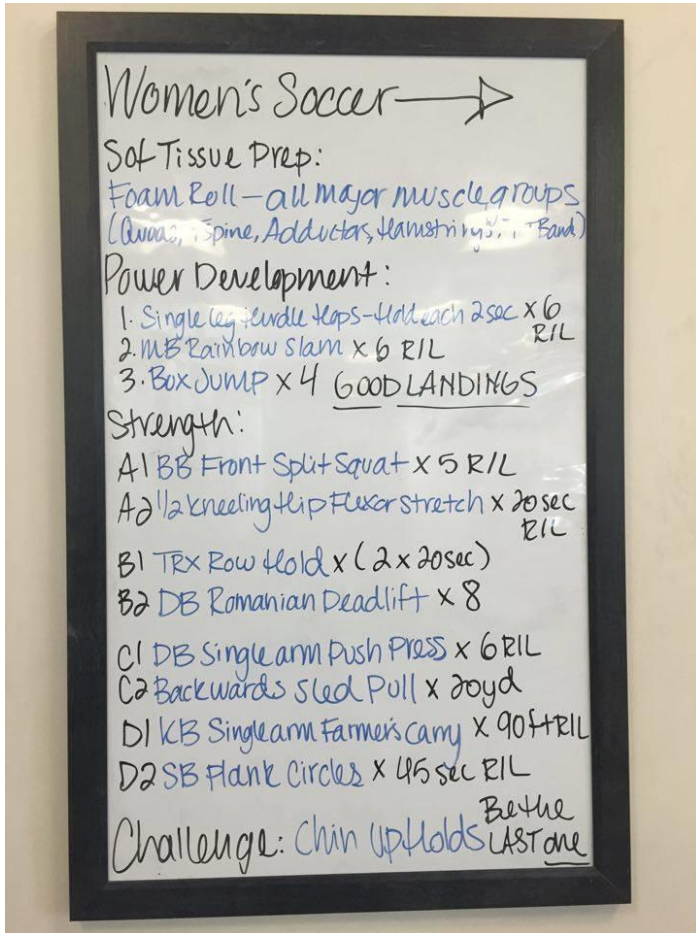 Women's Soccer
Sof Tissue Prep:
Foam Roll - all major muscle groups
(Quads, Spine, Adductors, Hamstrings, Band)
Power Development:
1. Single leg Hurdle Hops - Hold each 2 sec x 6
R/L
2. MB Rainbow Slam x 6 R/L
3. Box Jump x 4 GOOD LANDINGS
Strength:
A1 BB Front Split Squat x 5 R/L
A2 1/2 kneeling Hip Flexor Stretch x 20 sec
R/L
B1 TRX Row Hold x (2 x 20sec)
B2 DB Romanian Deadlift x 8
C1 DB Single arm Push Press x 6 R/L
C2 Backwards Sled Pull x 20yd
D1 KB Single arm Farmer's Carry x 90ft R/L
D2 SB Plank Circles x 45 sec R/L
Challenge: Chin Up Holds Be the
LAST one